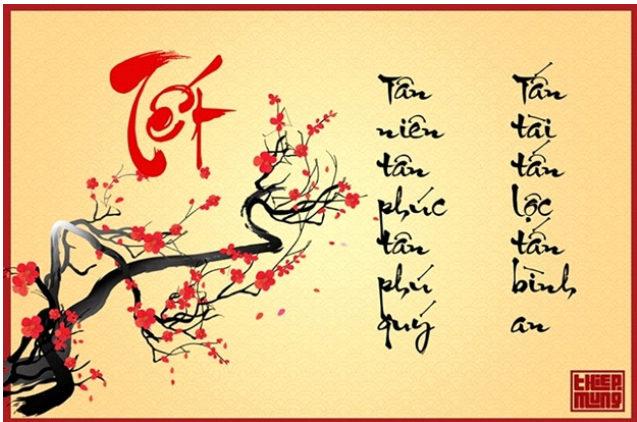 Tết
Tân niên tân phúc tân phú quý
Tấn tài tấn lộc tấn bình an
THIỆP
MỪNG